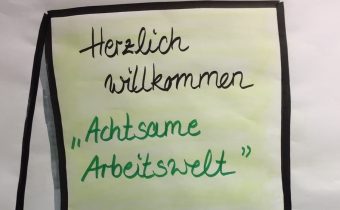 Herzlich
willkommen
„Achtsame
Arbeitswelt”